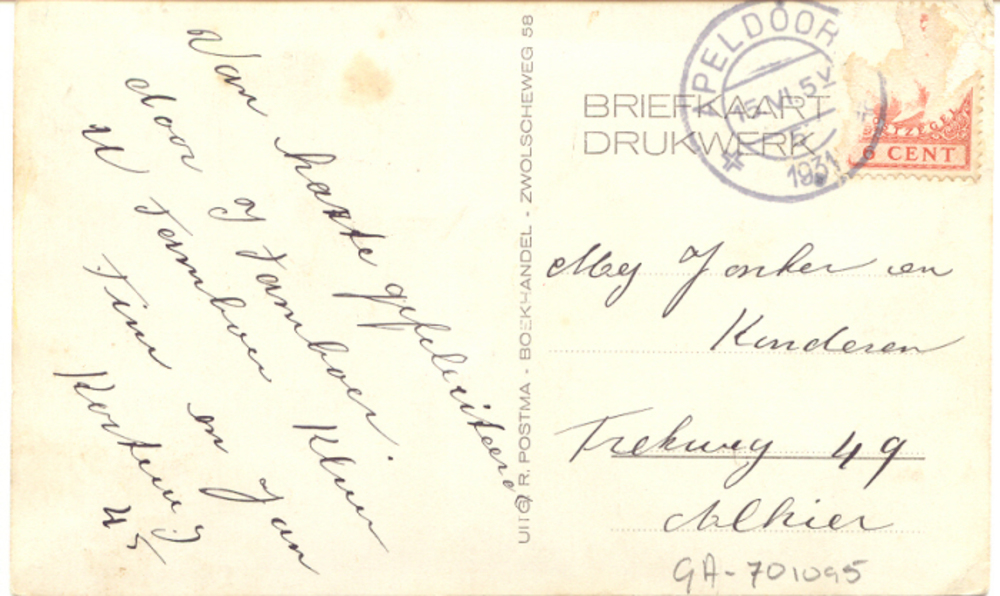 Van harte gefeliciteerd
door J Tamboer.
W Tamboer Klein
Tine en Jan
Korteweg
45
UITG. R. POSTMA - BOEKHANDEL - ZWOLSCHEWEG 58
BRIEFKAART
DRUKWERK
APELDOOR
15.VI.5
1931
CENT
Mej Jonker en
Kinderen
Trekweg 49
Alhier
GA-701095